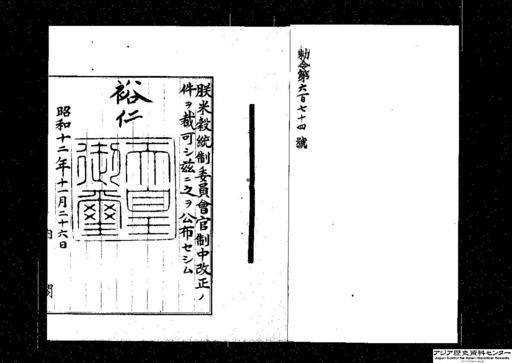 勅令第六百七十四號
朕米穀統制委員會官制中改正ノ
件ヲ裁可シ茲ニ之ヲ公布セシム
裕仁
天皇御璽
昭和十二年十一月二十六日
内閣
アジア歴史資料センター
Japan Center for Asian Historical Records